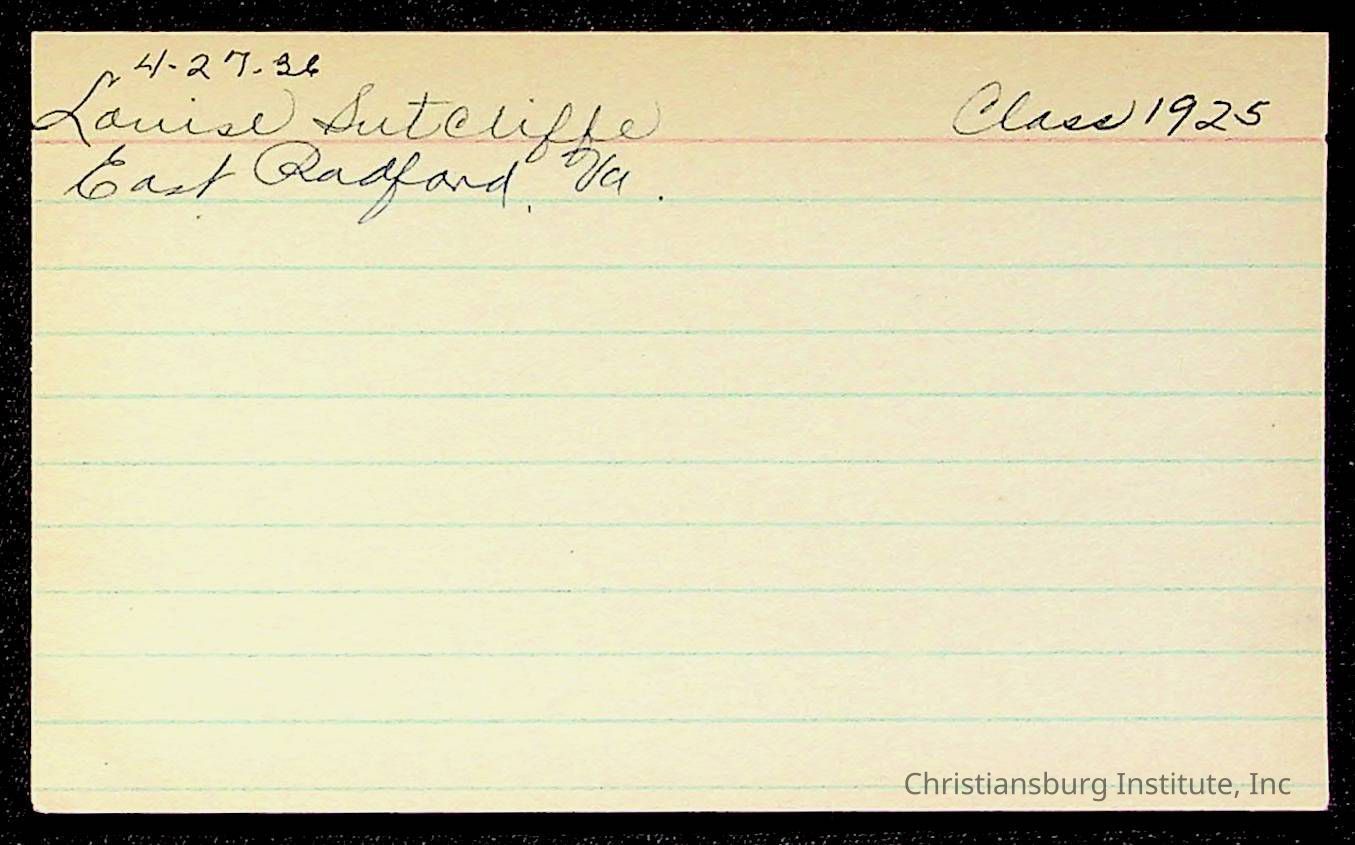 4-27-36
Louise Sutcliffe Class 1925
East Radford, Va.
Christiansburg Institute, Inc